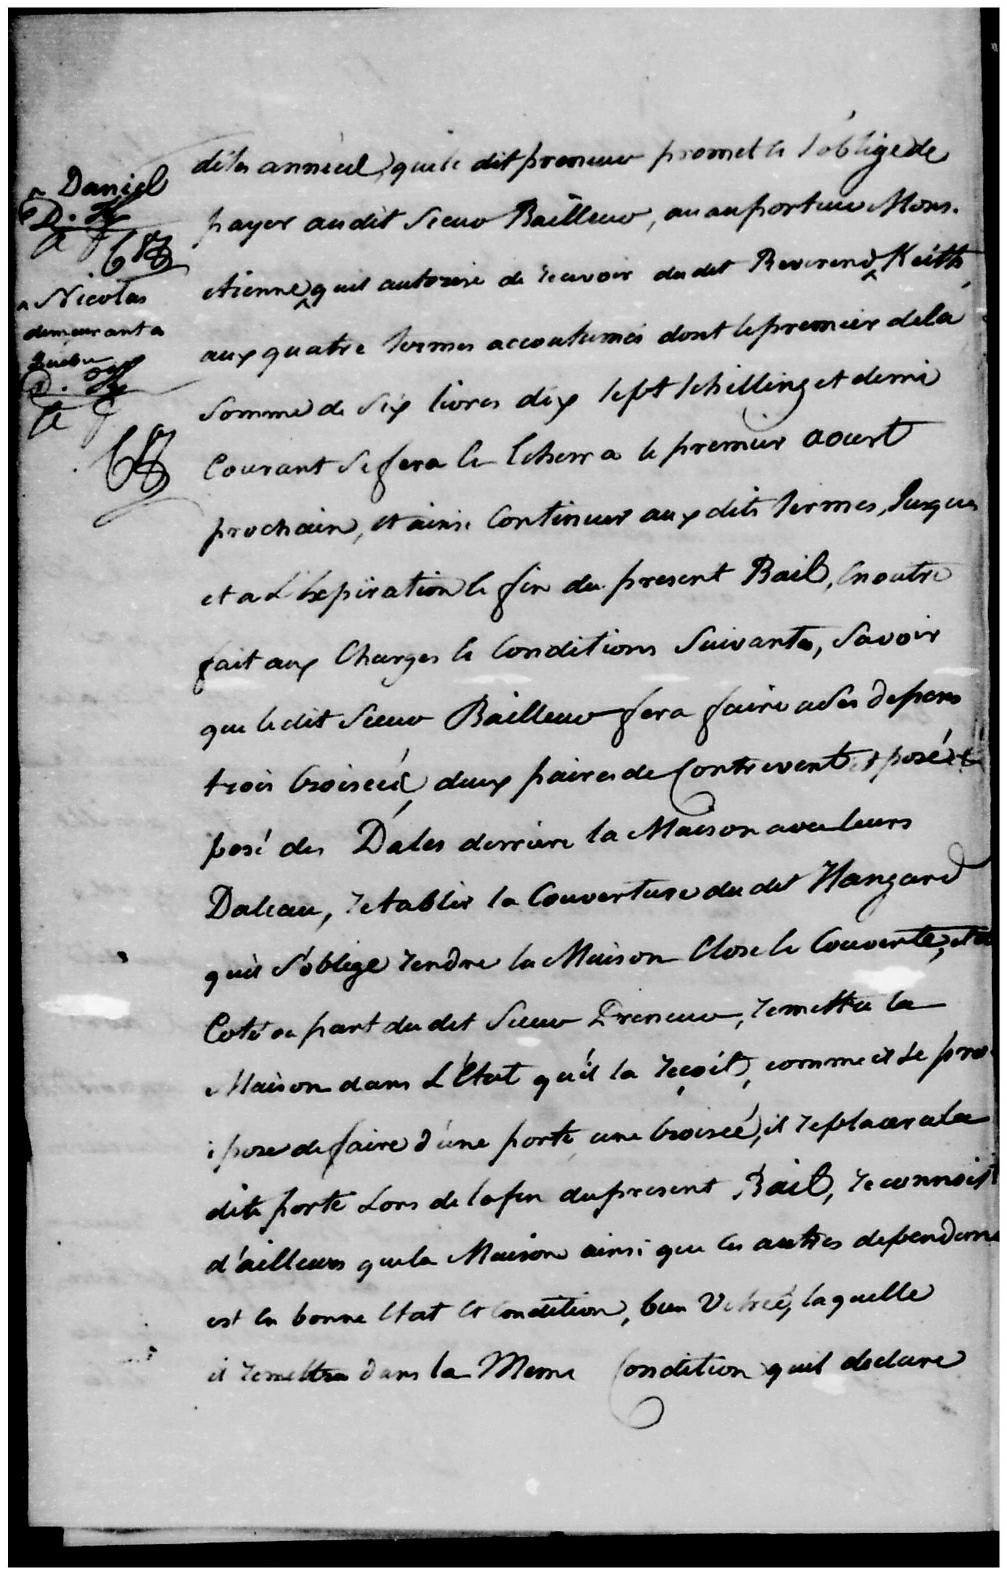 ^ Daniel
D. K
A J
GB
^ Nicolas
demeurant a
Quebec
D. K
A J
GB
dites annéés, que le dit preneur promet & s'oblige de
payer audit Sieur Bailleur, ou au porteur Mons.
Etienne ^ qu'il autorise de recevoir du dit Reverend ^ Keith,
aux quatre termes accoutumés dont le premier de la
Somme de Six livres dix sept Schilling et demi
Courant se fera & Echerra le premier aoust
prochain, et ainsi Continuer aux dits termes, Jusques
et a L'Expiration & fin du present Bail, En outre
fait aux Charges & Conditions Suivantes, Savoir
que le dit Sieur Bailleur fera faire a Ses depens
trois Croiseés, deux paires de Contrevents et posé
posé des Dales derriere la Maison avec leurs
Daleau, retablir la Couverture du dit Hangard
qu'il S'oblige rendre la Maison Close & Couverte,
Coté ou part du dit Sieur Preneur, remettra la
Maison dans L'Etat qu'il la reçoit, comme il Se pro
: pose de faire d'une porte une Croiseé, il replacera la
dite porte Lors de la fin du present Bail, reconnoist
d'ailleurs que la Maison ainsi que les autres dependance
est En bonne Etat & Condition, bien Vitreé, laquelle
il remettra dans la Meme Condition qu'il declare